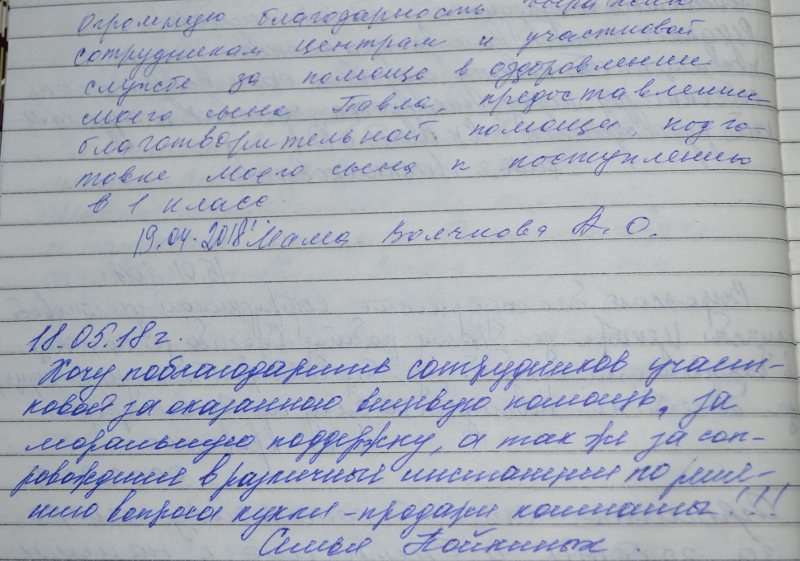 Огромную благодарность выражаю
сотрудникам центрам и участковой
службе за помощь в оздоровлении
моего сына Павла, предоставлении
благотворительной помощи, подго-
товке моего сына к поступлению
в 1 класс.
19.04.2018г. Мама Волчкова А.О.
18.05.18г.
Хочу поблагодарить сотрудников участ-
ковой за оказанную вещевую помощь, за
моральную поддержку, а так же за соп-
ровождение в различные инстанции по реше-
нию вопроса купли-продажи комнаты!!!
Семья Пойкиных.